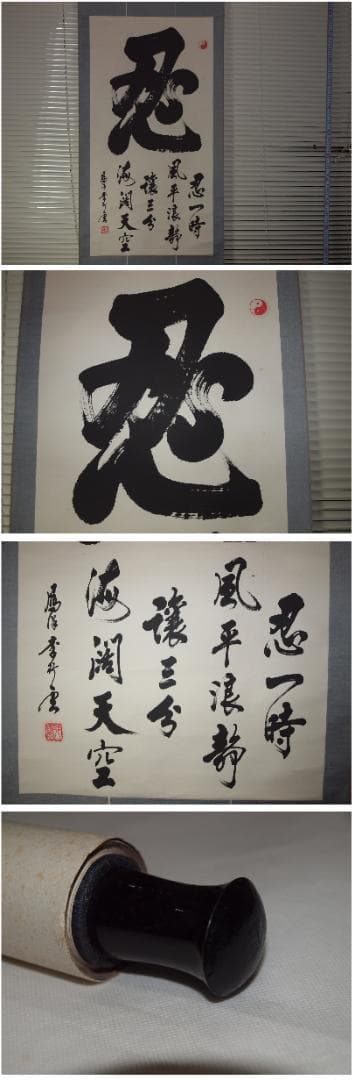 忍
忍一時
風平浪靜
讓三分
海闊天空
忍
忍一時
風平浪靜
讓三分
海闊天空